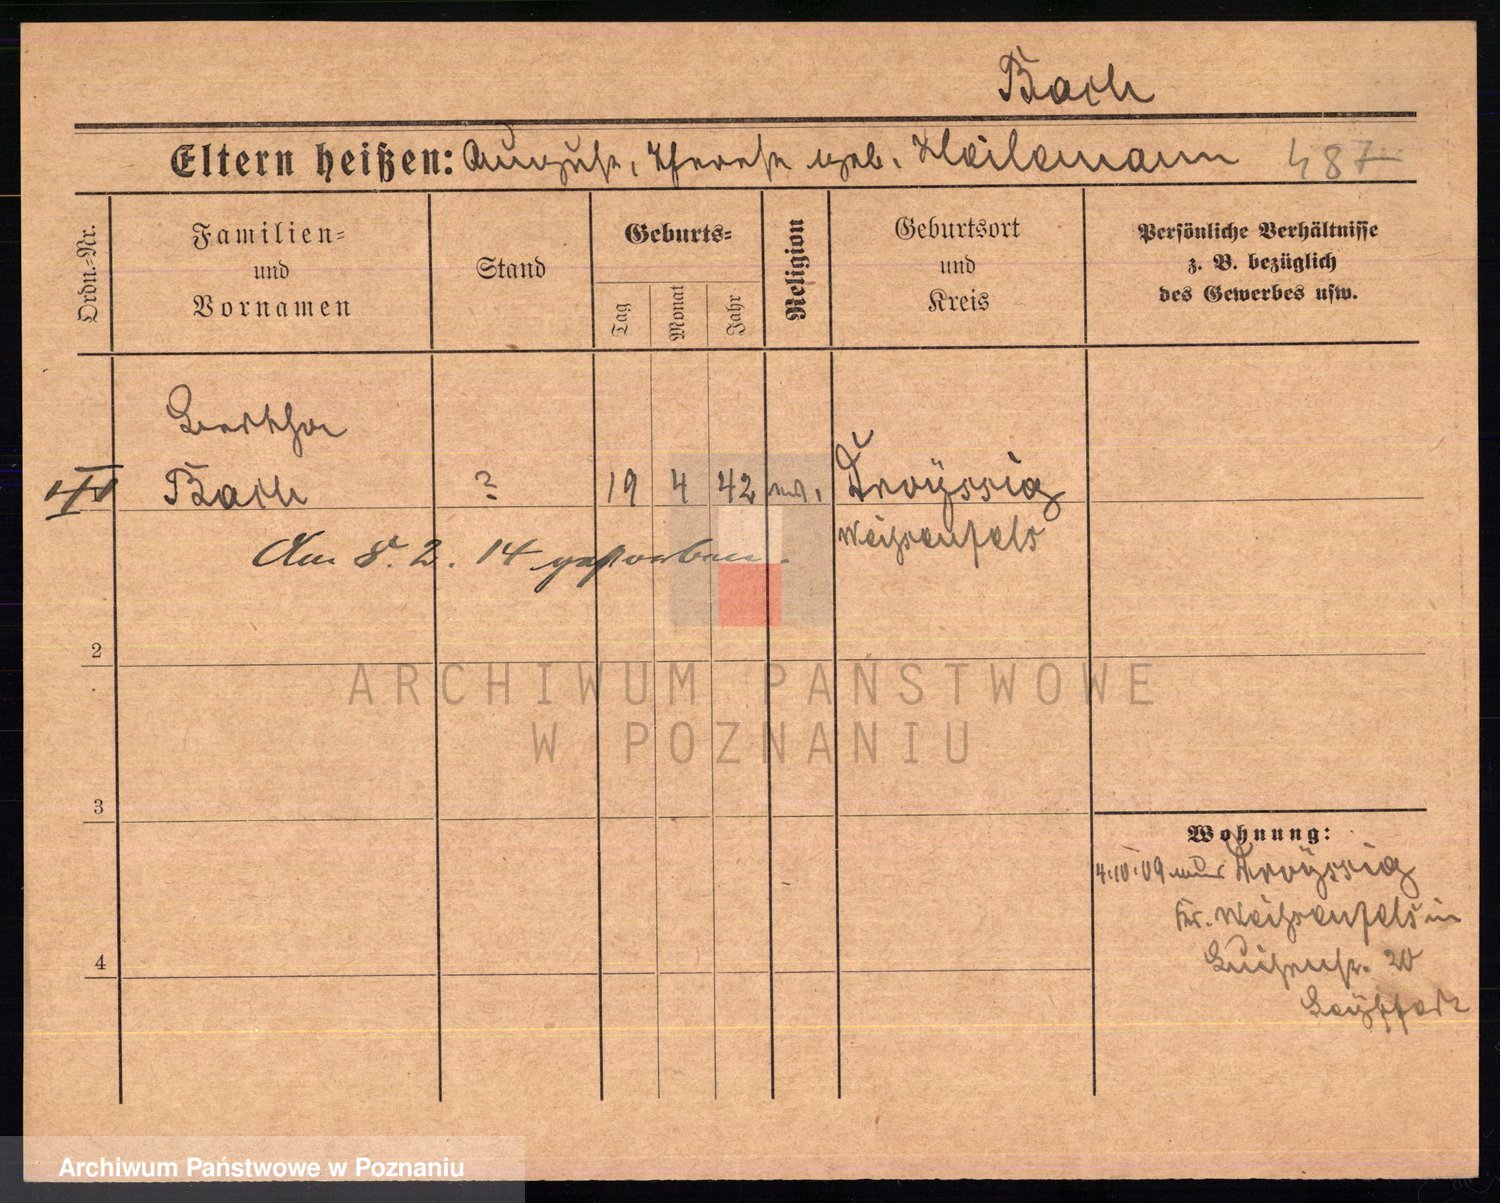 Bach
Eltern heißen: August, Therese geb. Heilemann 487
Ordn.-Nr.
Familien-
und
Vornamen
Stand
Geburts-
Tag
Monat
Jahr
Religion
Geburtsort
und
Kreis
Persönliche Verhältnisse
z. B. bezüglich
des Gewerbes usw.
Bertha
Bach ? 19 4 42 ev. Droyssig
Weißenfels
Am 8. 2. 14 gestorben.
2
3
4
Wohnung:
4.10.09 aus Droyssig
Kr. Weißenfels in
Luisenstr. 20
ARCHIWUM PAŃSTWOWE
W POZNANIU
Archiwum Państwowe w Poznaniu